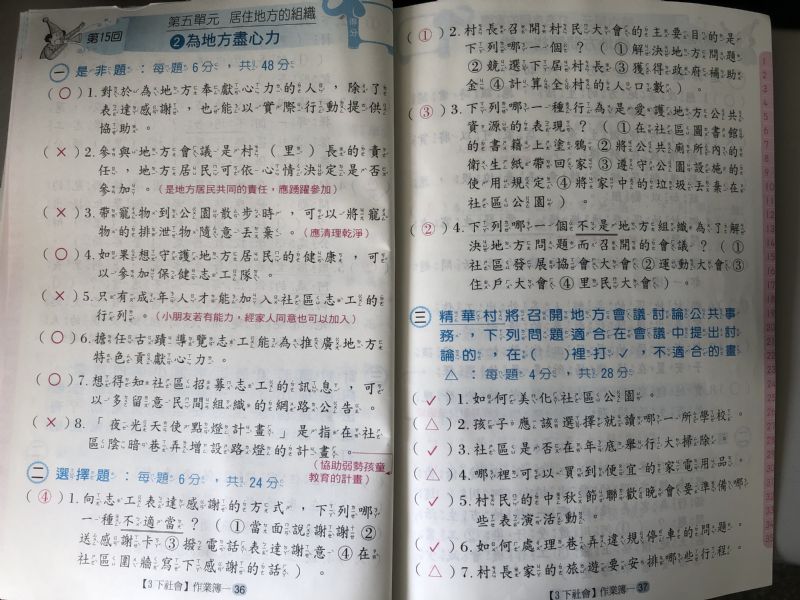 第15回
第五單元 居住地方的組織
❷為地方盡心力
得分
一 是非題：每題6分，共48分
（○）1.對於為地方奉獻心力的人，除了
表達感謝，也能以實際行動提供
協助。
（×）2.參與地方會議是村（里）長的責
任，地方居民可依心情決定是否
參加。（是地方居民共同的責任，應踴躍參加）
（×）3.帶寵物到公園散步時，可以將寵
物的排泄物隨意丟棄。（應清理乾淨）
（○）4.如果想守護地方居民的健康，可
以參加保健志工隊。
（×）5.只有成年人才能加入社區志工的
行列。（小朋友若有能力，經家人同意也可以加入）
（○）6.擔任古蹟導覽志工能為推廣地方
特色貢獻心力。
（○）7.想得知社區招募志工的訊息，可
以多留意民間組織的網路公告。
（×）8.「夜光天使點燈計畫」是指在社
區陰暗巷弄增設路燈的計畫。
（協助弱勢孩童
教育的計畫）
二 選擇題：每題6分，共24分
（④）1.向志工表達感謝的方式，下列哪
一種不適當？（①當面說謝謝②
送感謝卡③撥電話表達謝意④在
社區圍牆寫下感謝的話）。
【3下社會】作業簿—36
（①）2.村長召開村民大會的主要目的是
下列哪一個？（①解決地方問題
②競選下屆村長③獲得政府補助
金④計算全村的人口數）。
（③）3.下列哪一種行為是愛護地方公共
資源的表現？（①在社區圖書館
的書籍上塗鴉②將公共廁所內的
衛生紙帶回家③遵守公園設施的
使用規定④將家中的垃圾丟棄在
社區公園）。
（②）4.下列哪一個不是地方組織為了解
決地方問題而召開的會議？（①
社區發展協會大會②運動大會③
住戶大會④里民大會）。
三 精華村將召開地方會議討論公共事
務，下列問題適合在會議中提出討
論的，在（ ）裡打✓，不適合的畫
△：每題4分，共28分
（✓）1.如何美化社區公園。
（△）2.孩子應該選擇就讀哪一所學校。
（✓）3.社區是否在年底舉行大掃除。
（△）4.哪裡可以買到便宜的家電用品。
（✓）5.村民的中秋節聯歡晚會要準備哪
些表演活動。
（✓）6.如何處理巷弄違規停車的問題。
（△）7.村長家的旅遊要安排哪些行程。
【3下社會】作業簿—37